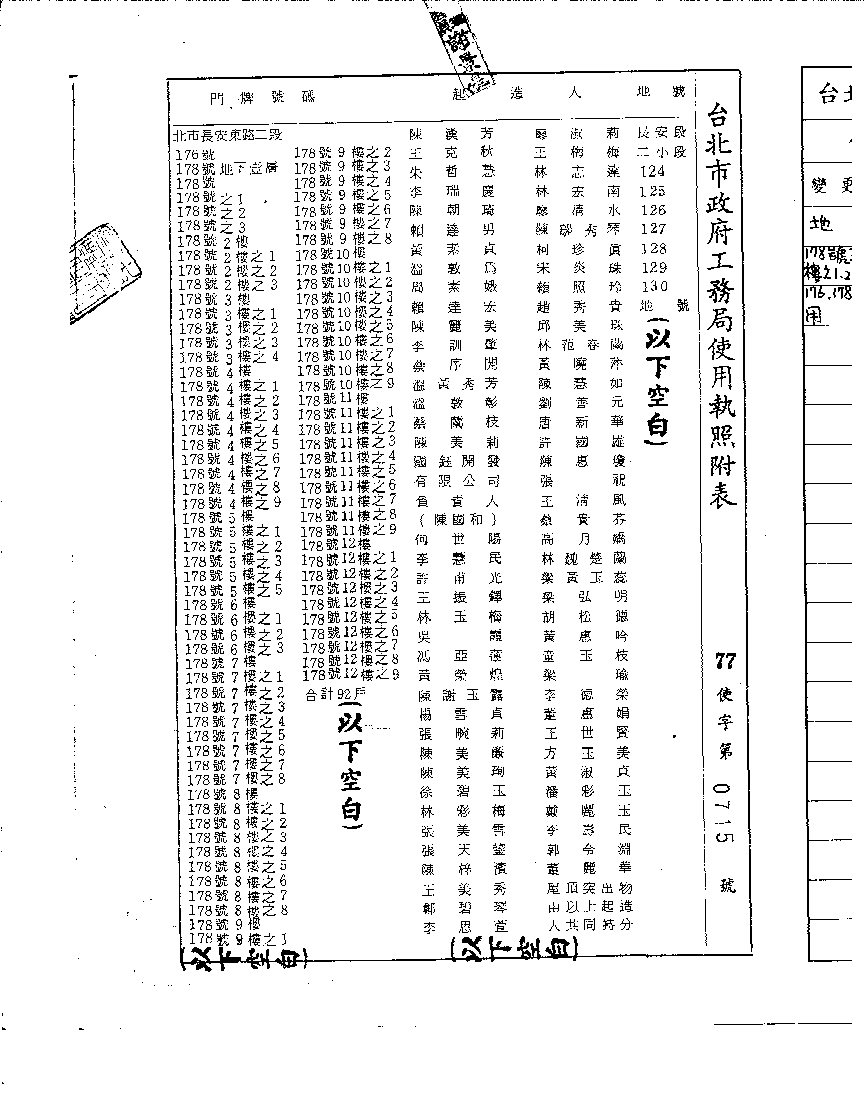 台北市政府工務局使用執照附表
77
使字第
0715
號
門牌號碼
起造人
地號
北市長安東路二段
176號
178號地下壹層
178號
178號之1
178號之2
178號之3
178號2樓
178號2樓之1
178號2樓之2
178號2樓之3
178號3樓
178號3樓之1
178號3樓之2
178號3樓之3
178號3樓之4
178號4樓
178號4樓之1
178號4樓之2
178號4樓之3
178號4樓之4
178號4樓之5
178號4樓之6
178號4樓之7
178號4樓之8
178號4樓之9
178號5樓
178號5樓之1
178號5樓之2
178號5樓之3
178號5樓之4
178號5樓之5
178號6樓
178號6樓之1
178號6樓之2
178號6樓之3
178號7樓
178號7樓之1
178號7樓之2
178號7樓之3
178號7樓之4
178號7樓之5
178號7樓之6
178號7樓之7
178號7樓之8
178號8樓
178號8樓之1
178號8樓之2
178號8樓之3
178號8樓之4
178號8樓之5
178號8樓之6
178號8樓之7
178號8樓之8
178號9樓
178號9樓之1
(以下空白)
178號9樓之2
178號9樓之3
178號9樓之4
178號9樓之5
178號9樓之6
178號9樓之7
178號9樓之8
178號10樓
178號10樓之1
178號10樓之2
178號10樓之3
178號10樓之4
178號10樓之5
178號10樓之6
178號10樓之7
178號10樓之8
178號10樓之9
178號11樓
178號11樓之1
178號11樓之2
178號11樓之3
178號11樓之4
178號11樓之5
178號11樓之6
178號11樓之7
178號11樓之8
178號11樓之9
178號12樓
178號12樓之1
178號12樓之2
178號12樓之3
178號12樓之4
178號12樓之5
178號12樓之6
178號12樓之7
178號12樓之8
178號12樓之9
合計92戶
(以下空白)
陳漢芳
王克秋
朱哲慧
李瑞慶
陳朝琦
賴達男
黃素貞
溫敦為
周素娥
賴達宏
陳麗美
李訓肇
溫黃秀芳
溫敦彰
陳美莉
鈺開發
有限公司
負責人
(陳國和)
何世陽
李慧民
許甫光
王振鐸
林玉梅
吳
馮亞
黃榮燦
陳謝玉露
楊雪貞
張婉莉
陳美
陳美珣
徐碧玉
林彩梅
張美雪
張天鋆
陳梓濱
王美秀
鄭碧琴
李思萱
(以下空白)
廖淑莉
王梅
林志
林宏南
廖清水
陳鄒秀琴
柯珍真
宋炎珠
賴照玲
趙秀貴
邱美珠
林范春蘭
黃曉萍
陳慧如
劉善元
唐新華
許國雄
陳惠瓊
張祝
王清風
蔡貴芬
高月嬌
林魏楚蘭
梁黃玉蕊
梁弘明
胡松德
黃惠吟
童玉枝
梁瑜
李德榮
董惠娟
王世賢
方玉美
黃淑貞
潘彩玉
戴麗玉
李彭民
郭令淵
董麗華
屋頂突出物
由以上起造
人共同持分
長安段
二小段
124
125
126
127
128
129
130
地號
(以下空白)
台北
變更
地
178號
樓之1.2
176.178
用